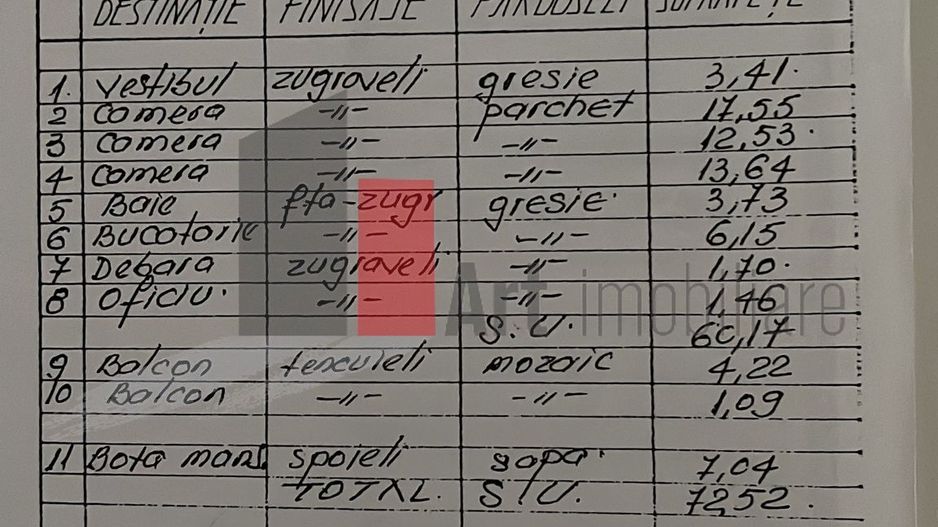 DESTINAȚIE FINISAJE PARDOSELI SUPRAFEȚE
1. Vestibul zugraveli gresie 3,41.
2 Camera -//- parchet 17,55
3 Camera -//- -//- 12,53.
4 Camera -//- -//- 13,64
5 Baie fta-zugr gresie. 3,73
6 Bucatarie -//- -//- 6,15
7 Debara zugraveli -//- 1,70.
8 Oficiu. -//- -//- 1,46
S.U. 60,17
Art imobiliare
9 Balcon tencuieli mozaic 4,22
10 Balcon -//- -//- 1,09
11 Boxa mans spoieli sapa. 7,04
TOTAL. S.U. 72,52.